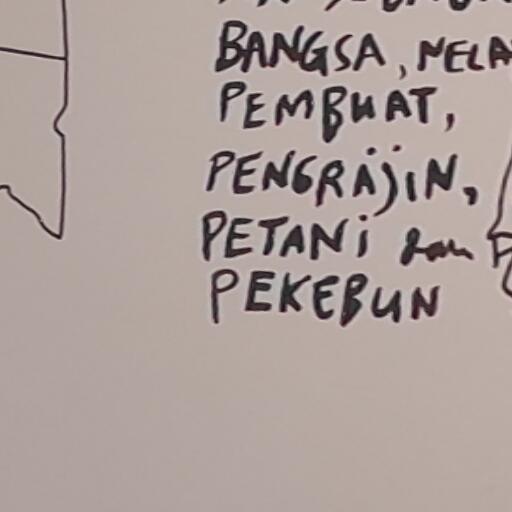 BANGSA, NELA
PEMBUAT,
PENGRAJIN,
PETANI dan P
PEKEBUN